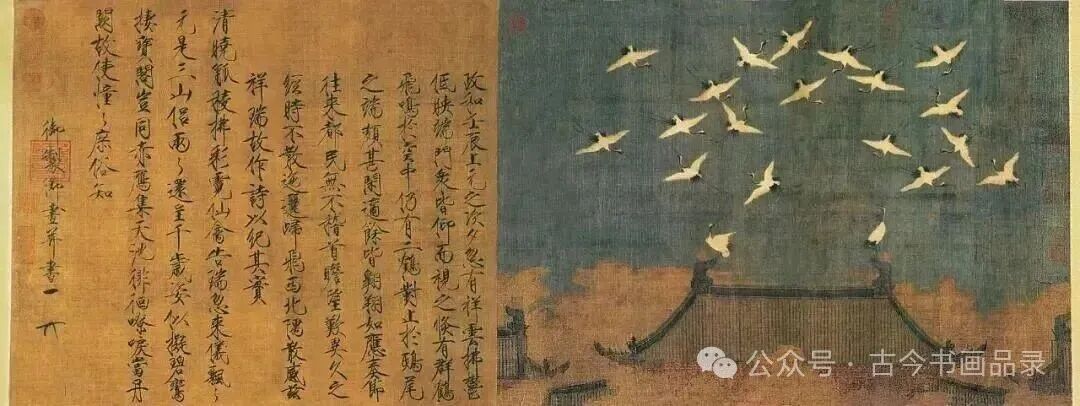 政和壬辰上元之次夕忽有祥雲拂鬱
低映端門衆皆仰而視之倏有群鶴
飛鳴於空中仍有二鶴對止於鴟尾
之端頗甚閑適餘皆翱翔如應奏節
往來都民無不稽首瞻望歎異久之
經時不散迤邐歸飛西北隅散感茲
祥瑞故作詩以紀其實
清曉觚稜拂彩霓仙禽告瑞忽來儀飄〻
元是三山侶兩〻還呈千歲姿似擬碧鸞
棲寶閣豈同赤鴈集天池徘徊嘹唳當丹
闕故使憧〻庶俗知
御製御畫并書
公众号·古今书画品录